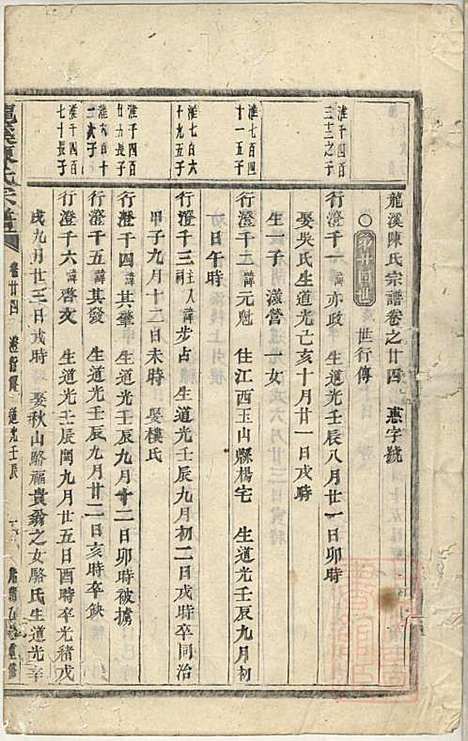 龍溪陳氏宗譜卷之廿四 惠字號
第廿四世 世行傳
淮千四百三十三之子
行澄千一諱亦政 生道光壬辰八月廿一日卯時
娶吳氏生道光己亥十月廿一日戌時
生一子 漢營 一女
淮七百四十一五子
行澄千二諱元魁 住江西玉山縣楊宅 生道光壬辰九月初
初日午時
淮七百六十九五子
行澄千三主人祠諱步占 生道光壬辰九月初二日戌時卒同治
甲子九月十二日未時 娶樓氏
淮千四百廿六長子
行澄千四諱其肇 生道光壬辰九月十二日卯時被擄
淮六百十二次子
行澄千五諱其發 生道光壬辰九月廿二日亥時卒缺
淮千四百七十長子
行澄千六諱啓文 生道光壬辰閏九月廿五日酉時卒光緒戊
戌九月廿三日戌時 娶秋山駱福貴翁之女駱氏生道光辛
龍溪陳氏宗譜 卷廿四 澄行傳 道光壬辰